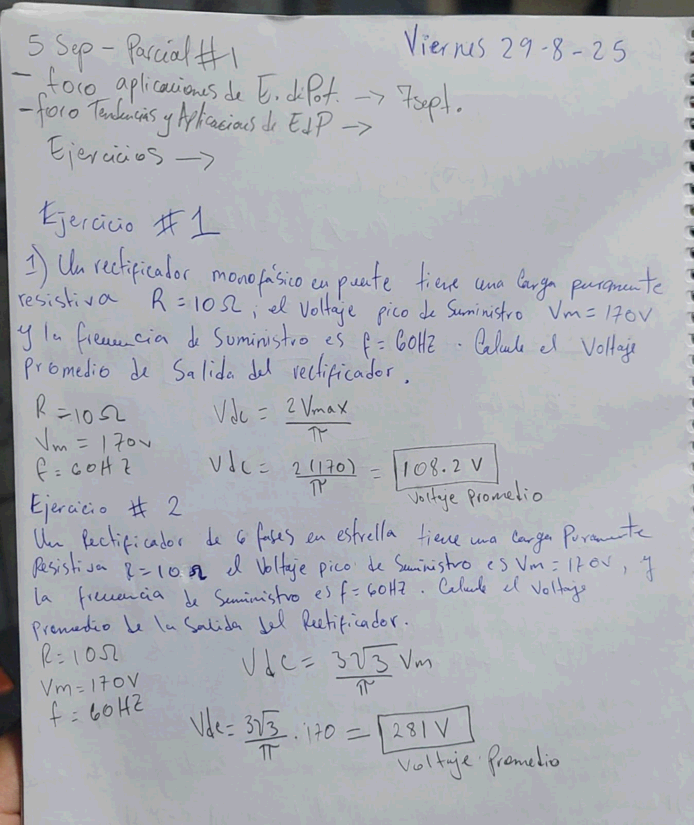 5 Sep - Parcial #1
Viernes 29-8-25
- foro aplicaciones de E. de Pot. → 7 sept.
- foro Tendencias y Aplicaciones de EdP →
Ejercicios →
Ejercicio #1
1) Un rectificador monofásico en puente tiene una Carga puramente
resistiva R = 10 Ω, el Voltaje pico de Suministro Vm = 170V
y la frecuencia de Suministro es f = 60HZ. Calcule el Voltaje
Promedio de Salida del rectificador.
R = 10 Ω
Vm = 170v
f = 60HZ
Vdc = 2Vmax / π
Vdc = 2(170) / π = 108.2 V
Voltaje Promedio
Ejercicio # 2
Un Rectificador de 6 fases en estrella tiene una Carga Puramente
Resistiva R = 10 Ω el Voltaje pico de Suministro es Vm = 170V, y
la frecuencia de Suministro es f = 60HZ. Calcule el Voltaje
Promedio de la Salida del Rectificador.
R = 10Ω
Vm = 170V
f = 60HZ
Vdc = 3√3 / π Vm
Vdc = 3√3 / π · 170 = 281 V
Voltaje Promedio